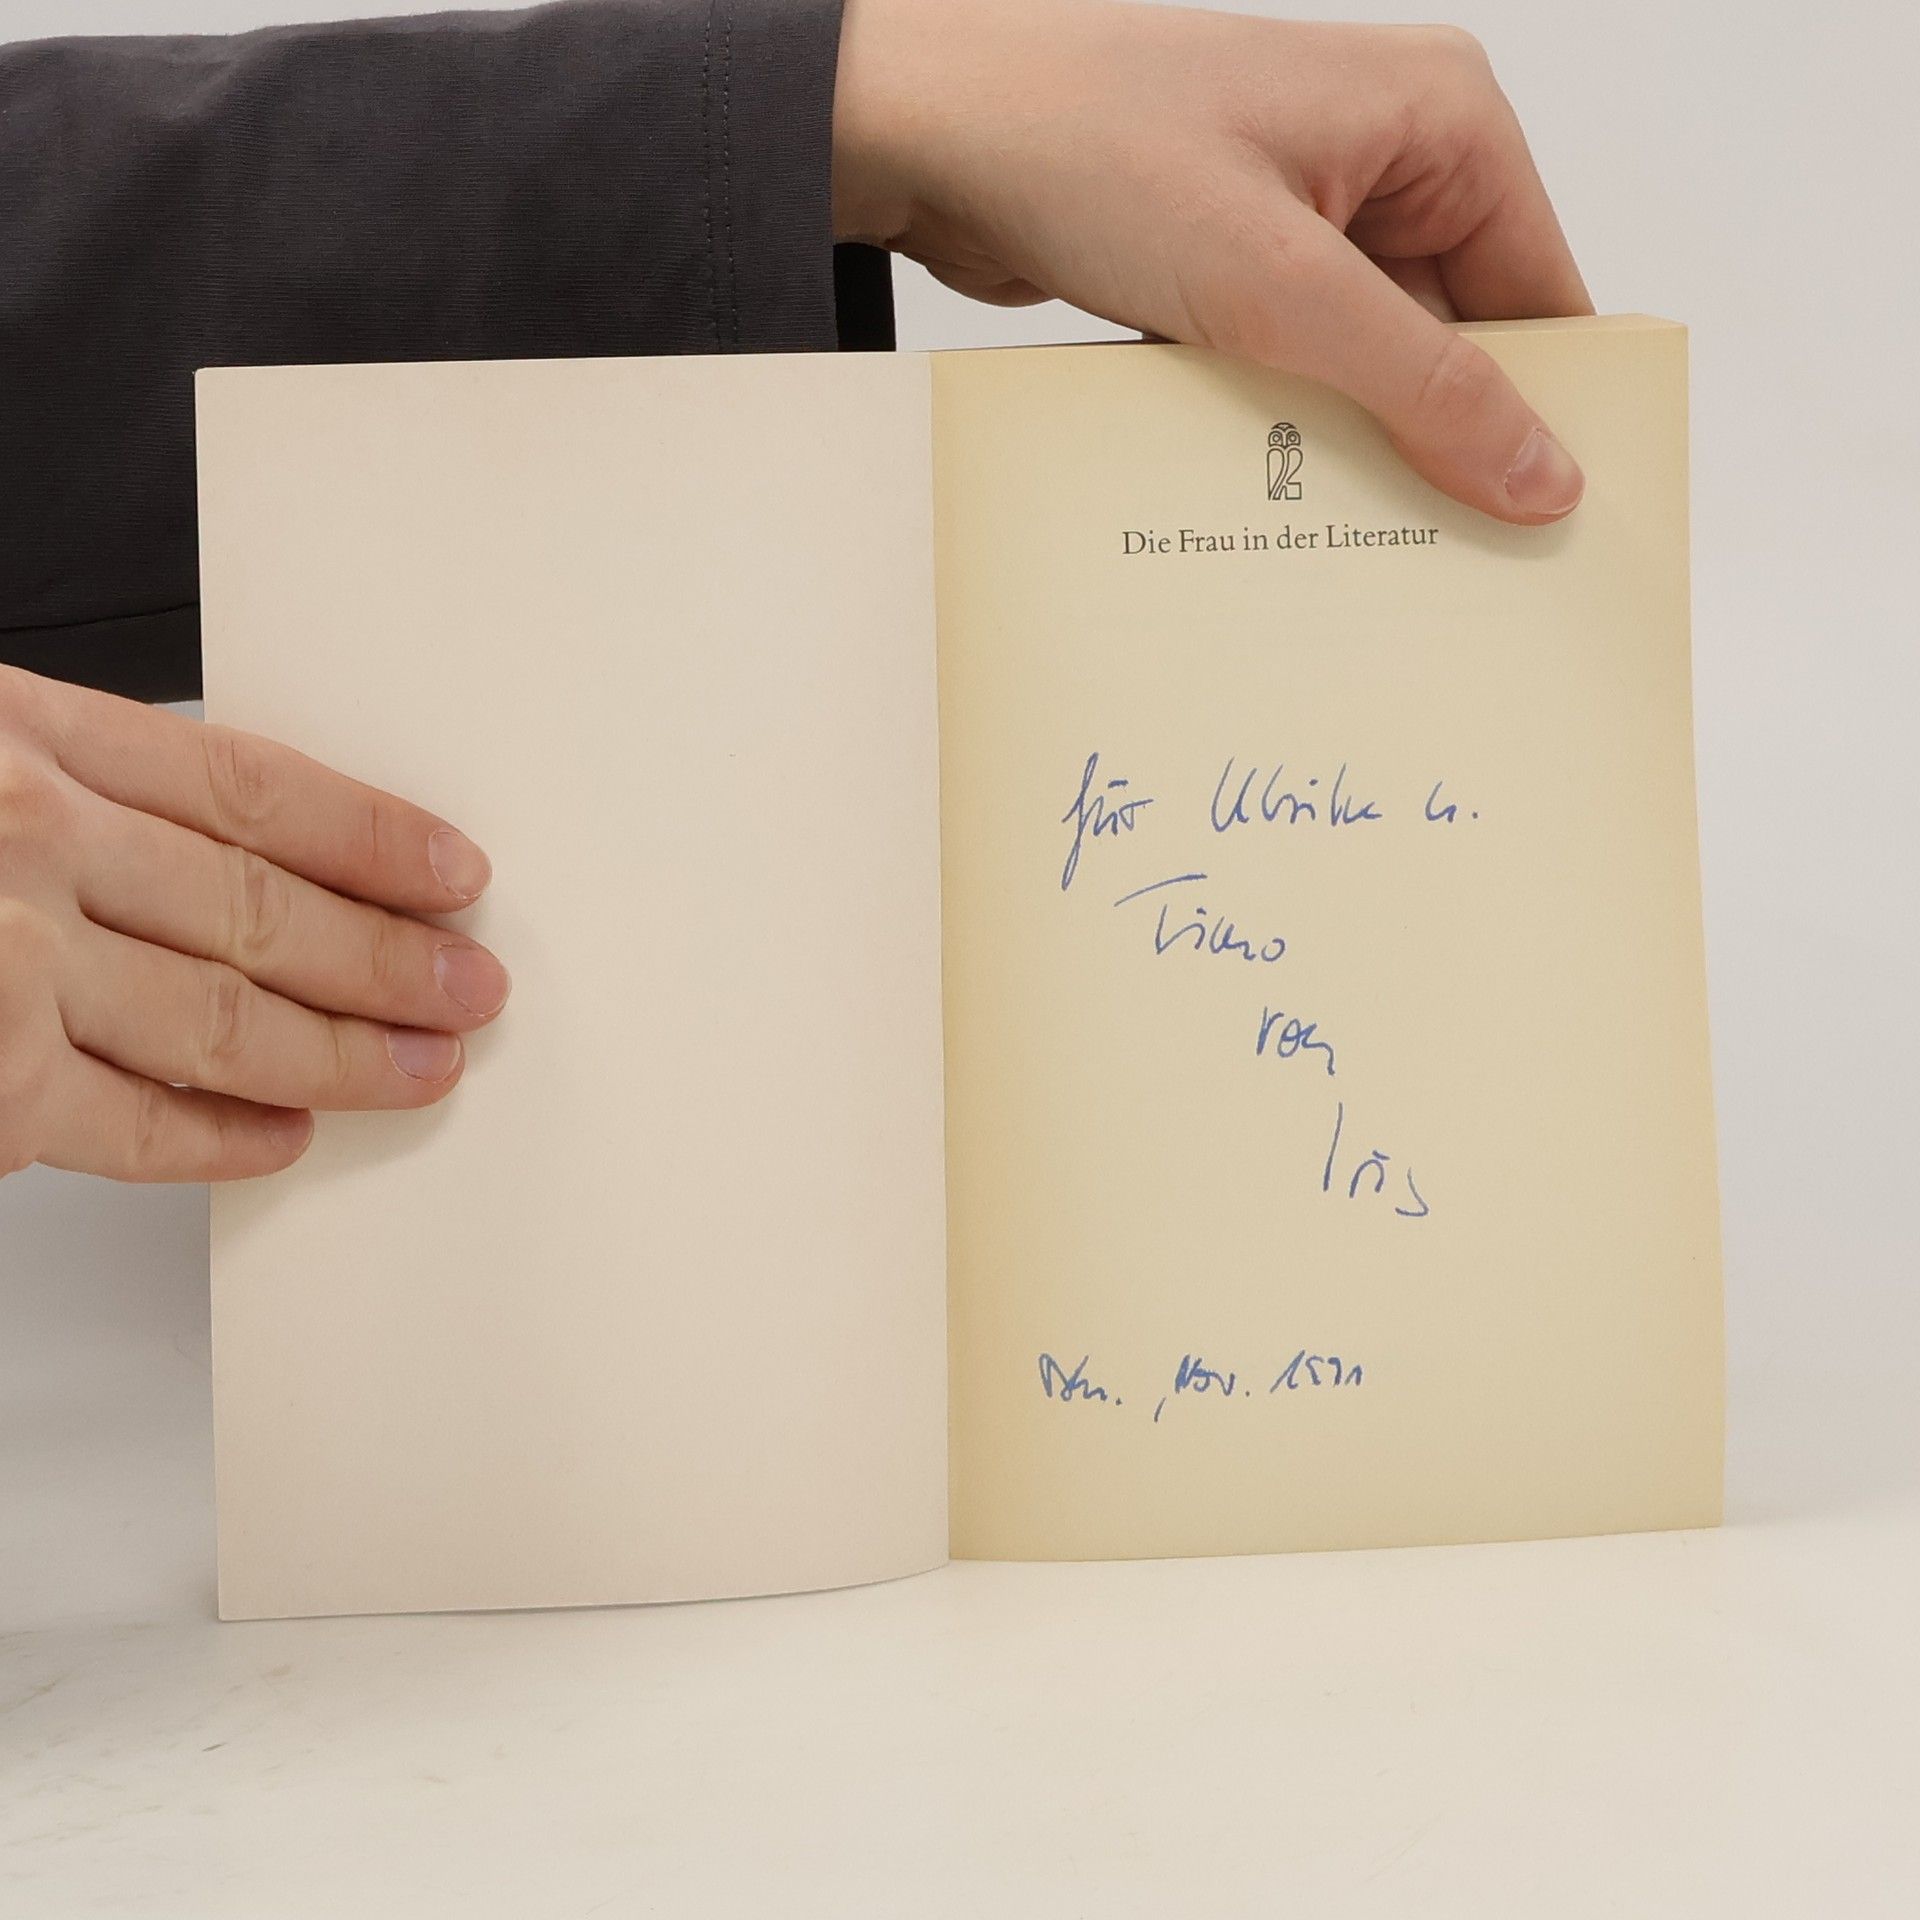 Die Frau in der Literatur
für Ulrike u.
Timo
von
Iris
, Nov. 1991